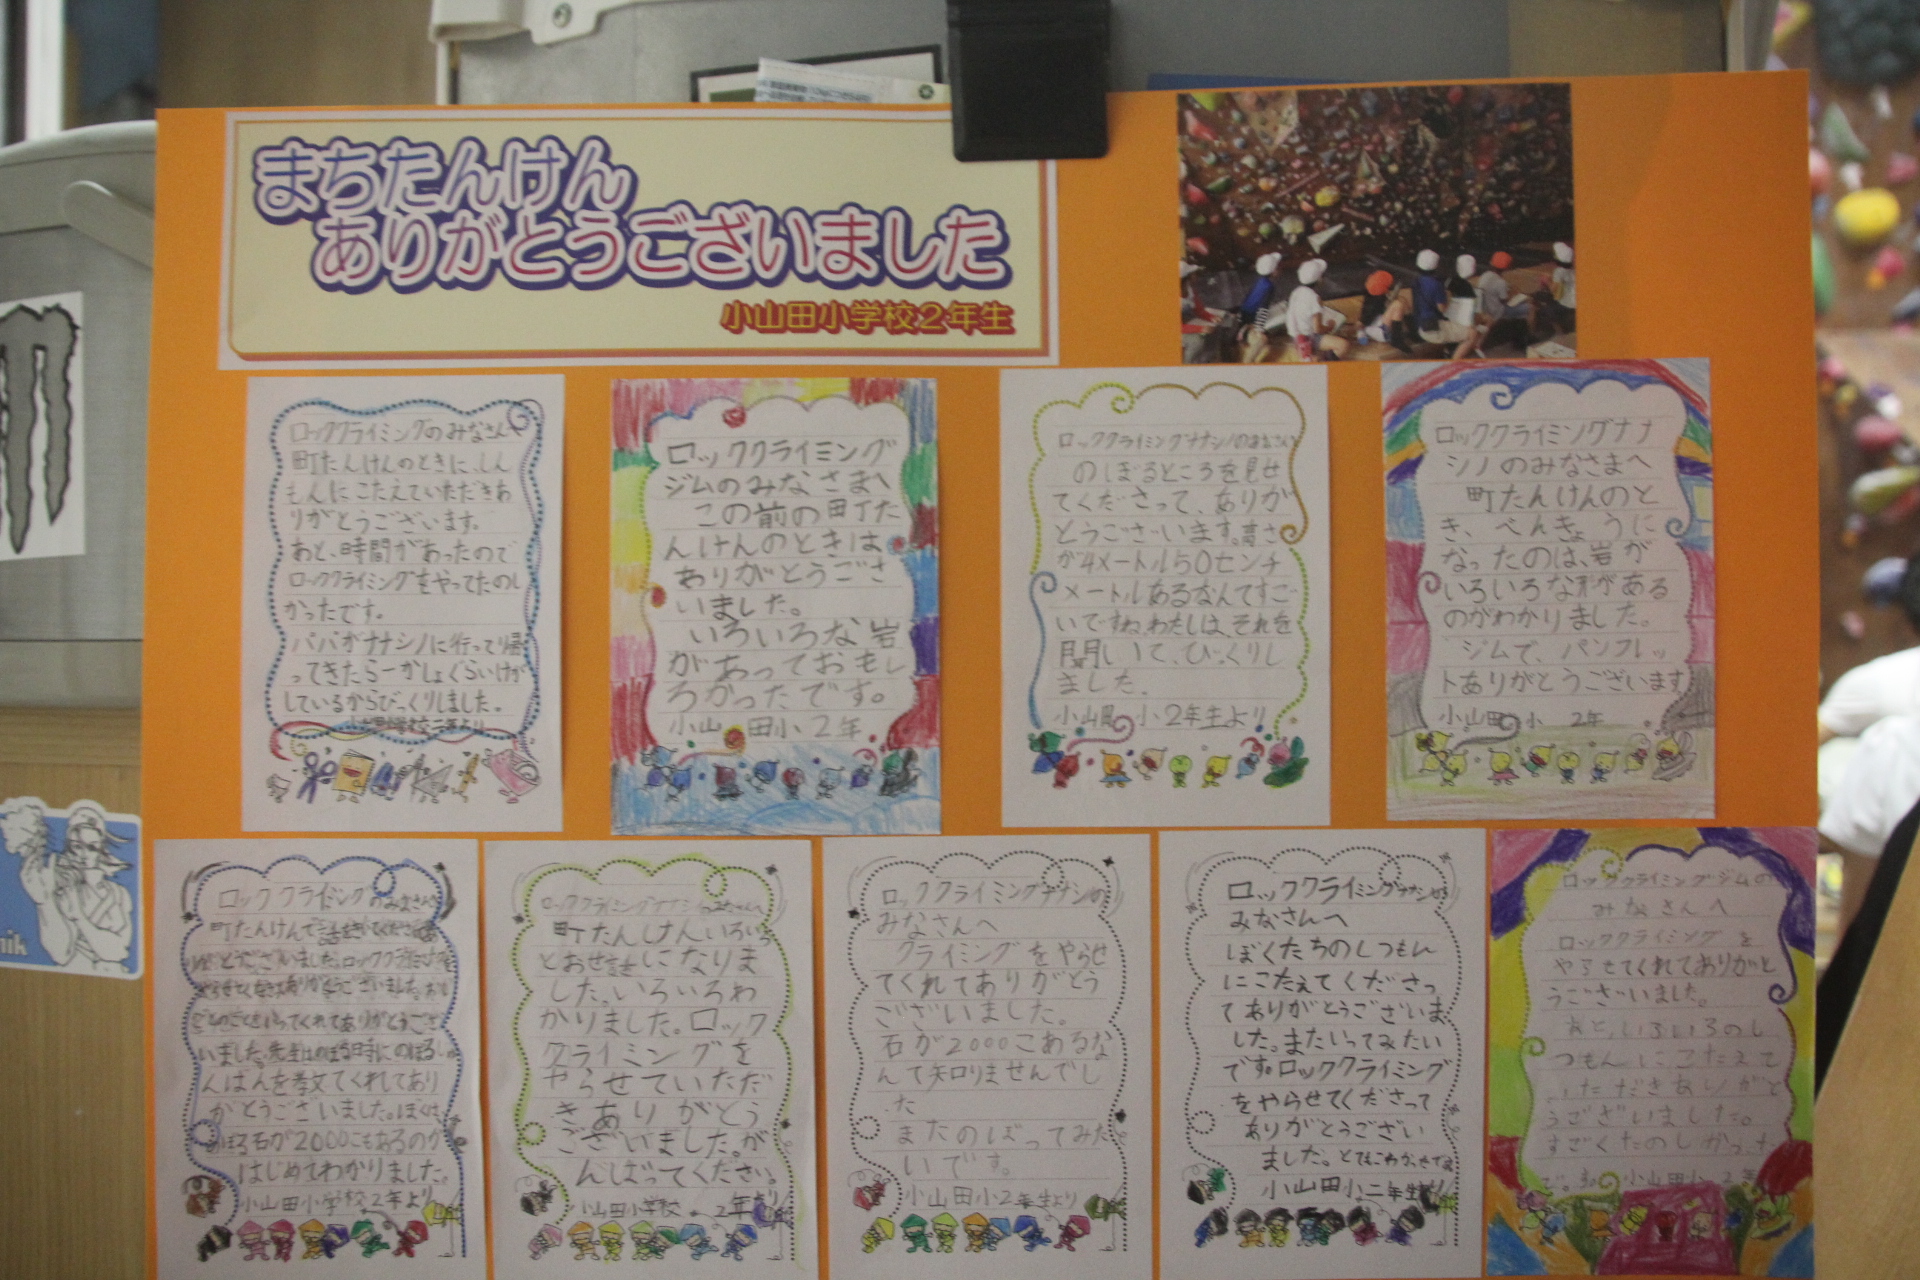 まちたんけん
ありがとうございました
小山田小学校2年生
ロッククライミングのみなさんへ
町たんけんのときに、しん
もんにこたえていただきあ
りがとうございます。
あと、時間があったので
ロッククライミングをやってたのし
かったです。
パパがナナシノに行って帰
ってきたら一かしょくらいけが
しているからびっくりしました。
ロッククライミング
ジムのみなさまへ
この前の町た
んけんのときは
ありがとうござ
いました。
いろいろな岩
があっておもし
ろかったです。
小山田小2年
ロッククライミングナナシノのみなさんへ
のぼるところを見せ
てくださって、ありが
とうございます。高さ
が4メートル50センチ
メートルあるなんてすご
いですね。わたしは、それを
聞いて、びっくりし
ました。
小山田小2年生より
ロッククライミングナナ
シノのみなさまへ
町たんけんのと
き、べんきょうに
なったのは、岩が
いろいろな形がある
のがわかりました。
ジムで、パンフレッ
トありがとうございます
小山田小 2年
ロッククライミングのみなさんへ
いました。先生はのぼる時にのぼる
んばんを教えてくれてあり
がとうございました。ぼくは
のぼる石が2000こもあるのが
はじめてわかりました。
小山田小学校2年より
ロッククライミングナナシノのみなさんへ
町たんけんいろいろ
とおせ話になりま
した。いろいろわ
かりました。ロック
クライミングを
やらせていただ
きありがとう
ございました。が
んばってください。
小山田小学校 2年より
ロッククライミングナナシの
みなさんへ
クライミングをやらせ
てくれてありがとう
ございました。
石が2000こあるな
んて知りませんでし
た
またのぼってみた
いです。
小山田小2年生より
ロッククライミングナナシの
みなさんへ
ぼくたちのしつもん
にこたえてくださっ
てありがとうございま
した。またいってみたい
です。ロッククライミング
をやらせてくださって
ありがとうござい
ました。
小山田小二年生より
ロッククライミングジムの
みなさんへ
ロッククライミングを
やらせてくれてありがと
うございました。
あと、いろいろのし
つもんにこたえて
いただきありがと
うございました。
すごくたのしかった
です。小山田小2年
nik